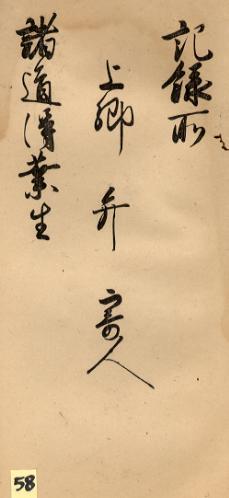 記録所
上卿 弁 寄人
諸道得業生
58